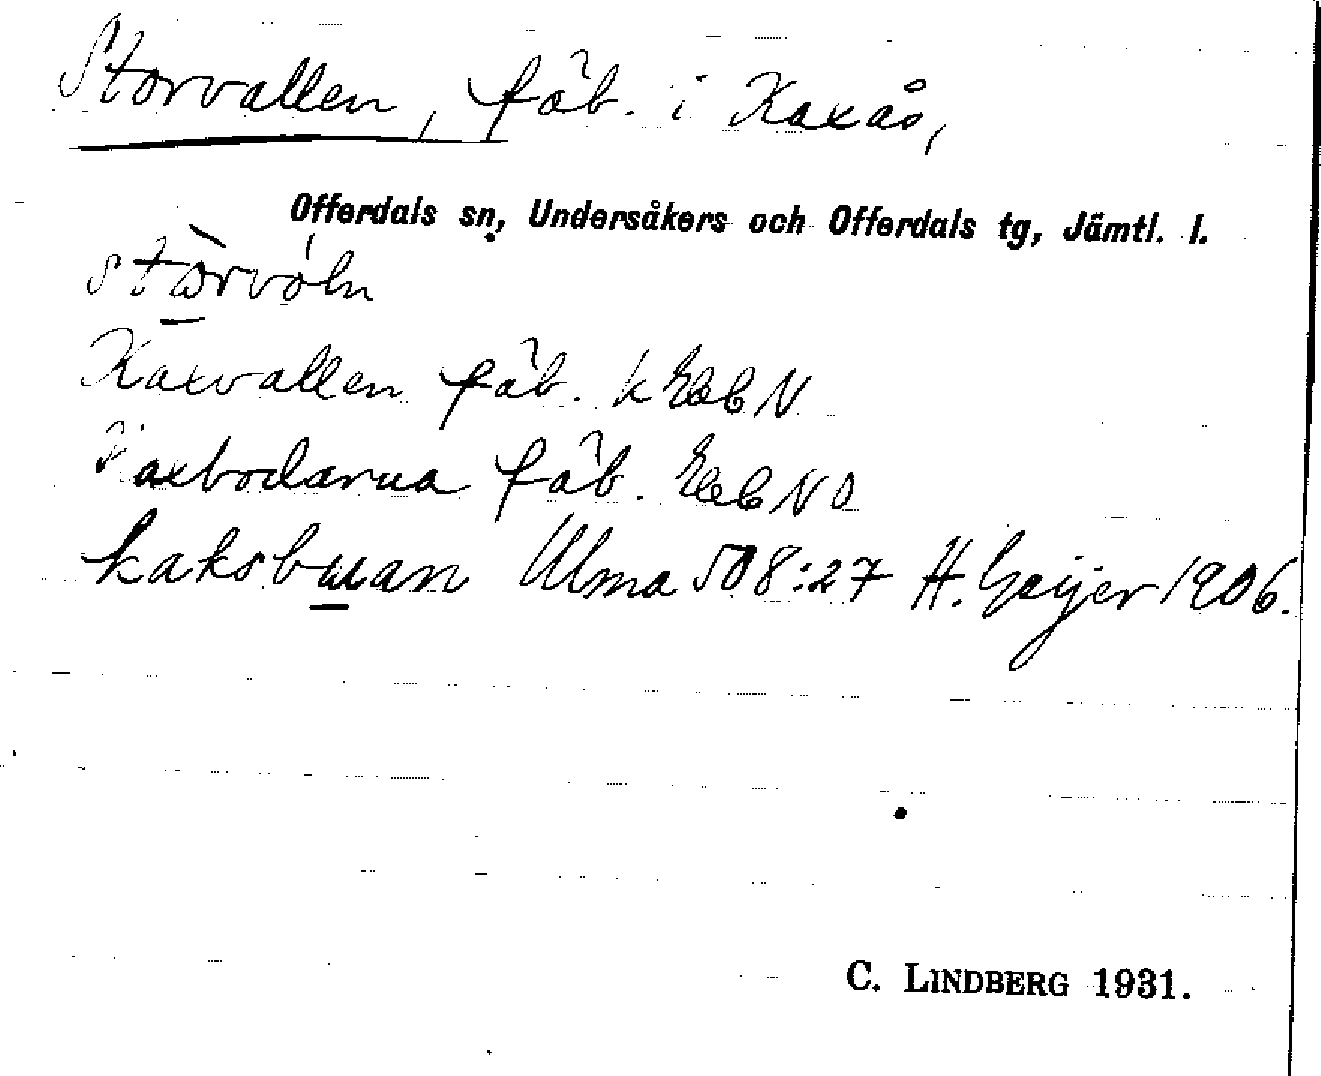 Storvallen, fäb. i Kaxås,
Offerdals sn, Undersåkers och Offerdals tg, Jämtl. l.
stòrvóln
Kaxvallen fäb. k EbCN
Kaxbodarna fäb. EbCNO
kaksbuan Ulma 508:27 H. Geijer 1906.
C. LINDBERG 1931.